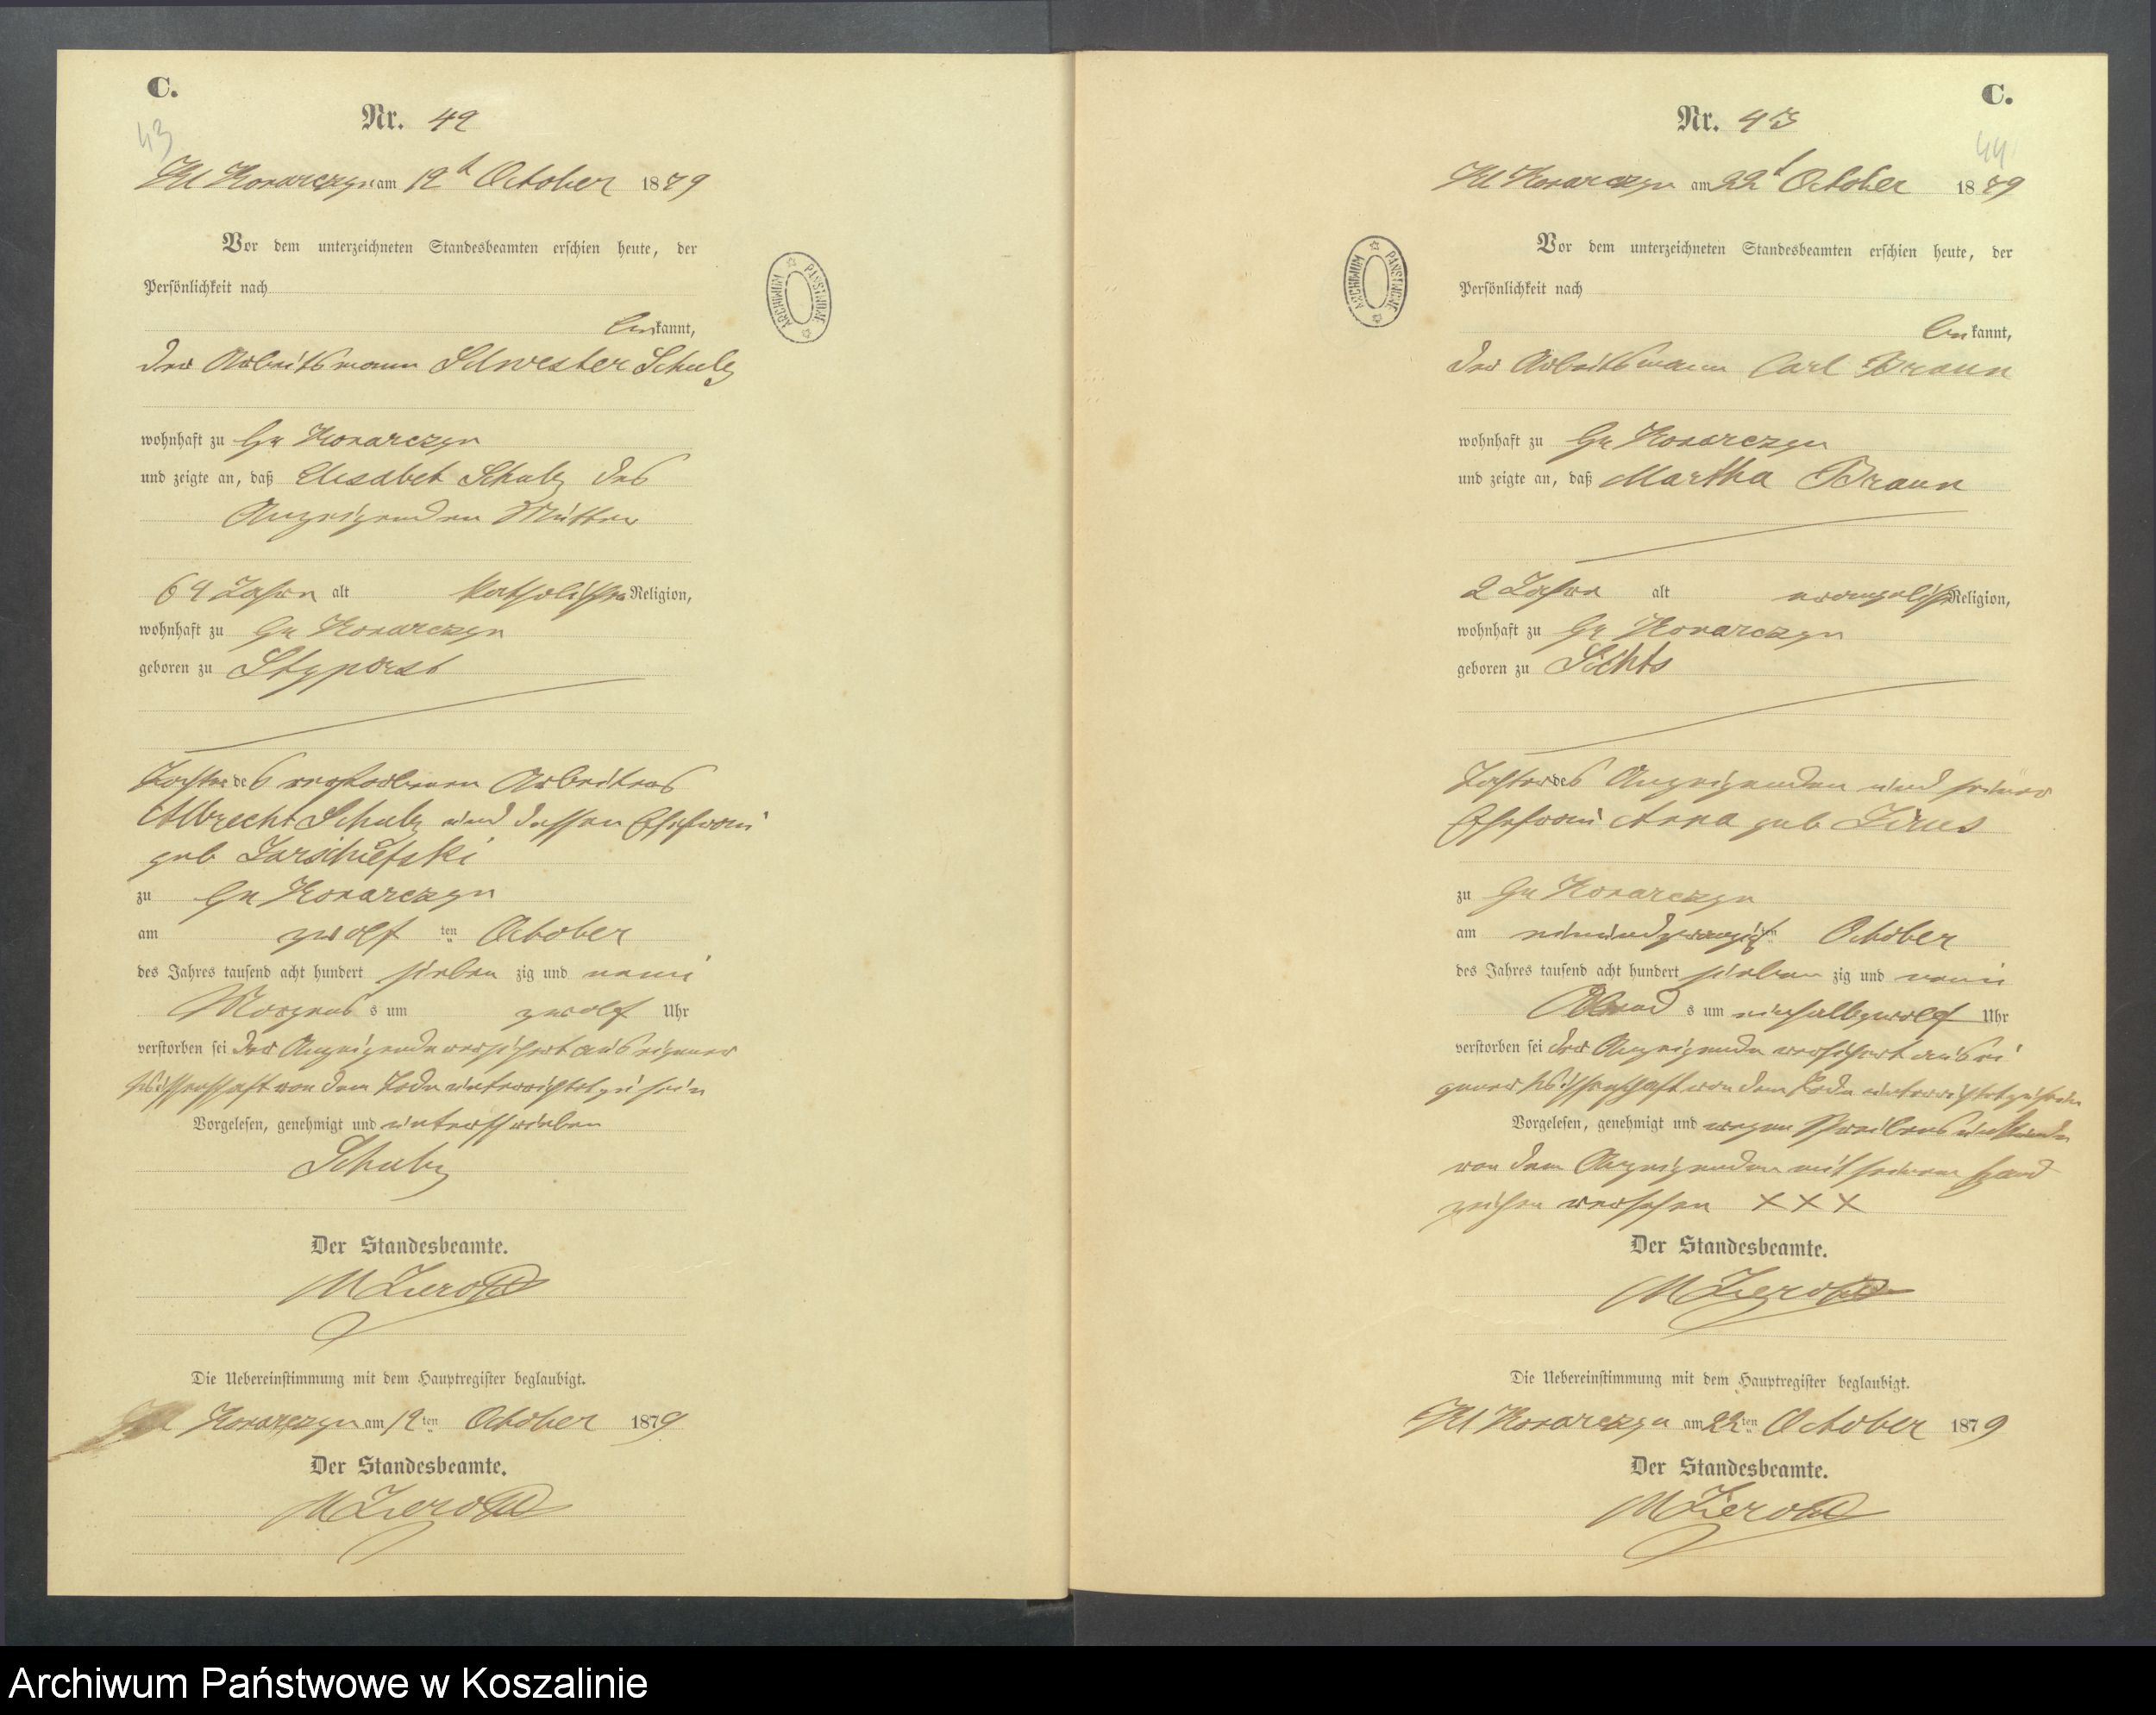 C.
Nr. 42
43
Kl Konarczyn am 12t October 1879
Vor dem unterzeichneten Standesbeamten erschien heute, der
Persönlichkeit nach
bekannt,
der Arbeitsmann Silwester Schulz
wohnhaft zu Gr Konarczyn
und zeigte an, daß Elisabet Schulz des
Anzeigenden Mutter
64 Jahre alt katholischer Religion,
wohnhaft zu Gr Konarczyn
geboren zu
Tochter des verstorbenen Arbeiters
Albrecht Schulz und dessen Ehefrau
geb
zu Gr Konarczyn
am zwölf ten October
des Jahres tausend acht hundert sieben zig und neun
Morgens s um zwölf Uhr
verstorben sei der Anzeigende versichert aus eigener
Wissenschaft von dem Tode unterrichtet zu sein
Vorgelesen, genehmigt und unterschrieben
Schulz
Der Standesbeamte.
Die Uebereinstimmung mit dem Hauptregister beglaubigt.
Konarczyn am 12 ten October 1879
Der Standesbeamte.
C.
Nr. 43
44
Kl Konarczyn am 22t October 1879
Vor dem unterzeichneten Standesbeamten erschien heute, der
Persönlichkeit nach
bekannt,
der Arbeitsmann Carl Braun
wohnhaft zu Gr Konarczyn
und zeigte an, daß Martha Braun
2 Jahre alt evangelisch Religion,
wohnhaft zu Gr Konarczyn
geboren zu Sichts
Tochter des Anzeigenden und seiner
Ehefrau Anna geb
zu Gr Konarczyn
am einundzwanzig ten October
des Jahres tausend acht hundert sieben zig und neun
Abend s um einhalbzwölf Uhr
verstorben sei der Anzeigende versichert aus ei
gener Wissenschaft von dem Tode unterrichtet zu sein
Vorgelesen, genehmigt und wegen Schreibensunkunde
von dem Anzeigenden mit seinem Hand
zeichen versehen XXX
Der Standesbeamte.
Die Uebereinstimmung mit dem Hauptregister beglaubigt.
Kl Konarczyn am 22 ten October 1879
Der Standesbeamte.
ARCHIWUM PAŃSTWOWE
ARCHIWUM PAŃSTWOWE
Archiwum Państwowe w Koszalinie